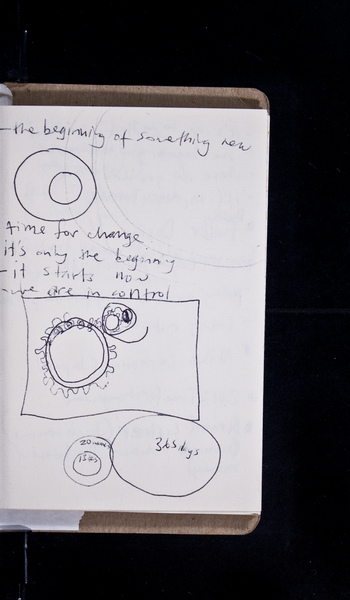 - the beginning of something new
time for change
it's only the beginning
- it starts now
- we are in control
365 days
20